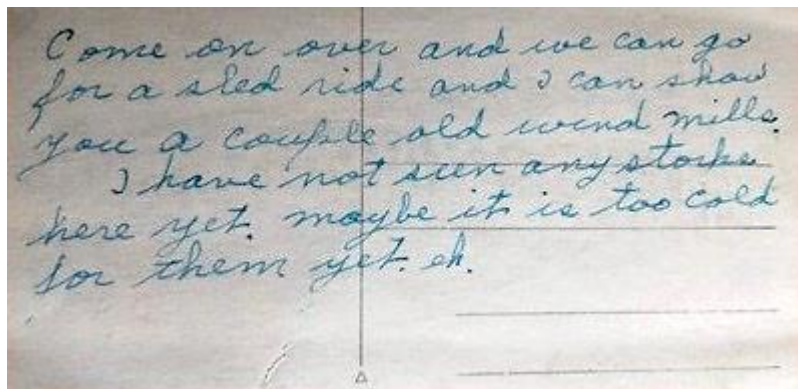 Come on over and we can go
for a sled ride and I can show
you a couple old wind mills.
I have not seen any storks
here yet. maybe it is too cold
for them yet. eh.